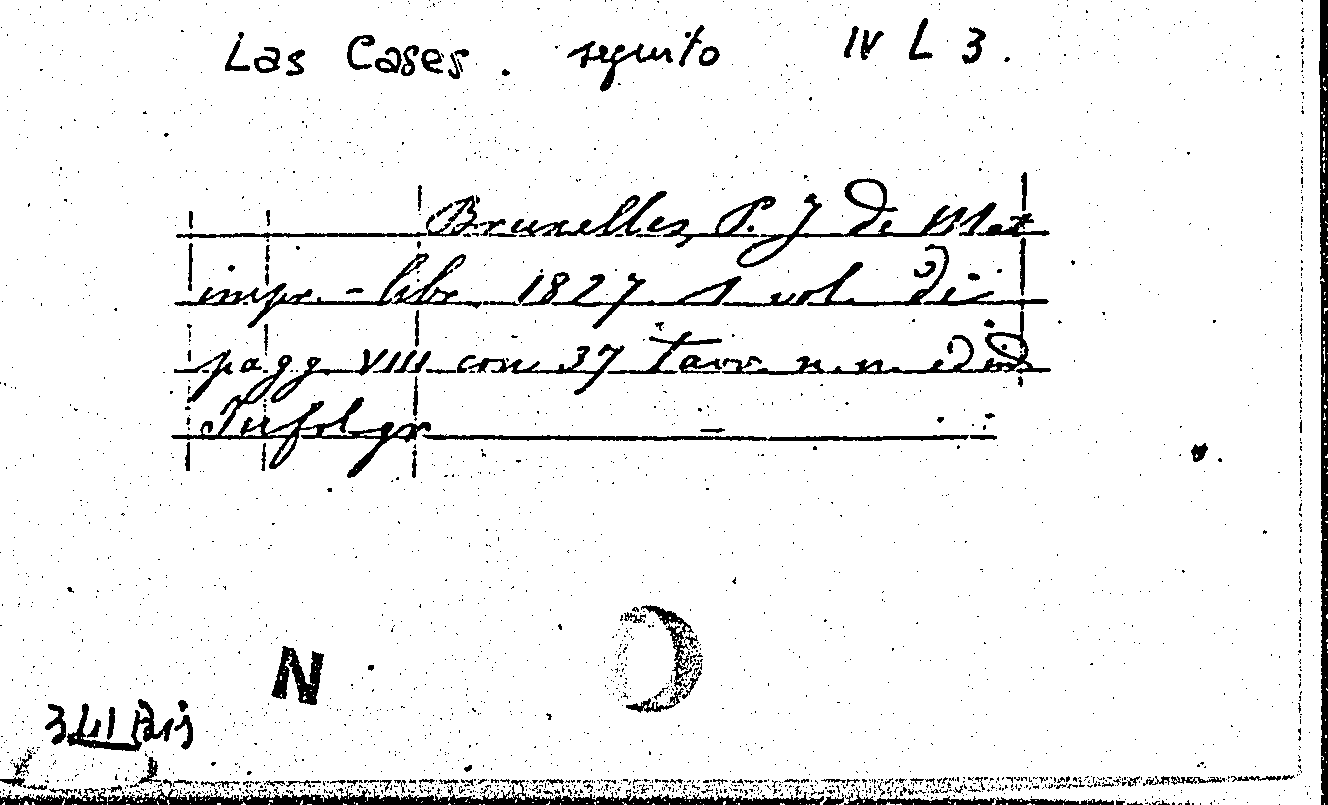 Las Cases. seguito IV L 3.
Bruxelles, P. J De Mat
impr. - libr. 1827 1 vol. di
pagg. VIII con 37 tavv. n. n. ed in
fol gr
N
Bis